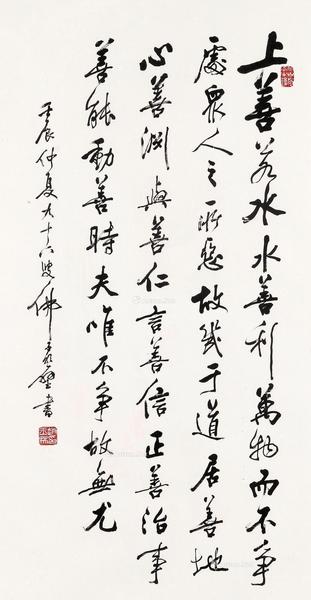 上善若水水善利萬物而不争
處眾人之所惡故幾于道居善地
心善淵與善仁言善信正善治事
善能動善時夫唯不争故無尤
壬辰仲夏九十六叟佛
書